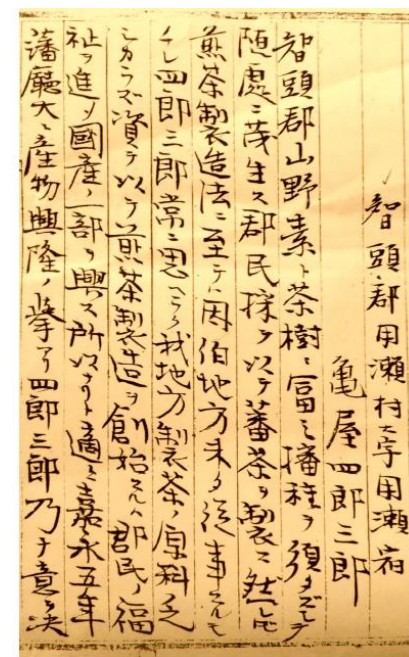 智頭郡用瀬村大字用瀬宿
亀屋四郎三郎
智頭郡山野素ト茶樹ニ冨ミ播種ヲ須タズシテ
随處ニ茂生ス郡民採テ以テ蕃茶ヲ製ス然レ𪜈
煎茶製造法ニ至テハ因伯地方未タ従事スルモ
ナシ四郎三郎常ニ思ヘラク我地方製茶ノ原料乏
シカラズ資テ以テ煎茶製造ヲ創始スルハ郡民ノ福
祉ヲ進メ國産ノ一部ヲ興ス所以ナリト適々嘉永五年
藩廳大ニ産物興隆ノ挙アリ四郎三郎乃チ意ヲ决